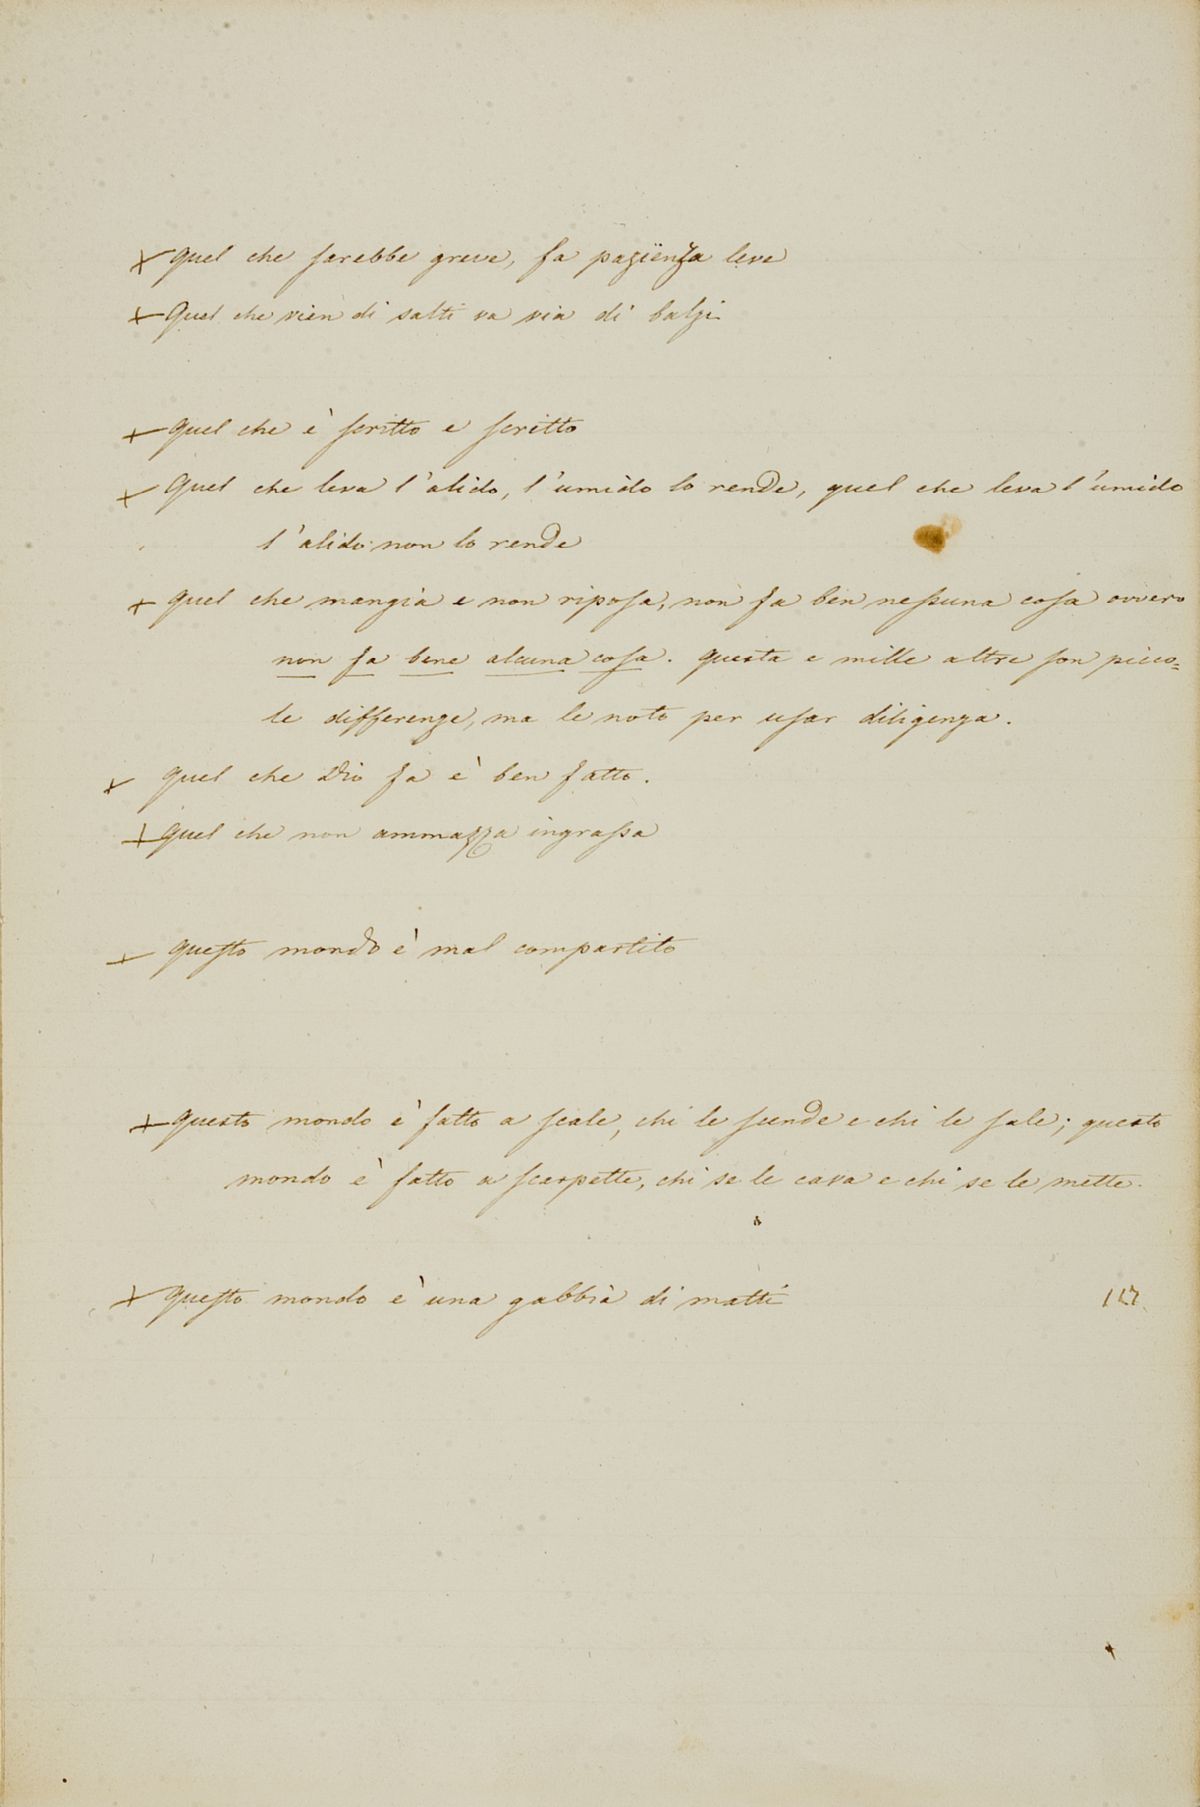 + Quel che sarebbe greve, fa pazïenza leve
+ Quel che vien di salti va via di balzi
+ Quel che è scritto e scritto
+ Quel che leva l'alido, l'umido lo rende, quel che leva l'umido
l'alido non lo rende
+ Quel che mangia e non riposa, non fa ben nessuna cosa ovvero
non fa bene alcuna cosa. Questa e mille altre son picco=
le differenze, ma le noto per usar diligenza.
+ Quel che Dio fa è ben fatto.
+ Quel che non ammazza ingrassa
+ Questo mondo è mal compartito
+ Questo mondo è fatto a scale, chi le scende e chi le sale; questo
mondo è fatto a scarpette, chi se le cava e chi se le mette.
+ Questo mondo è una gabbia di matti